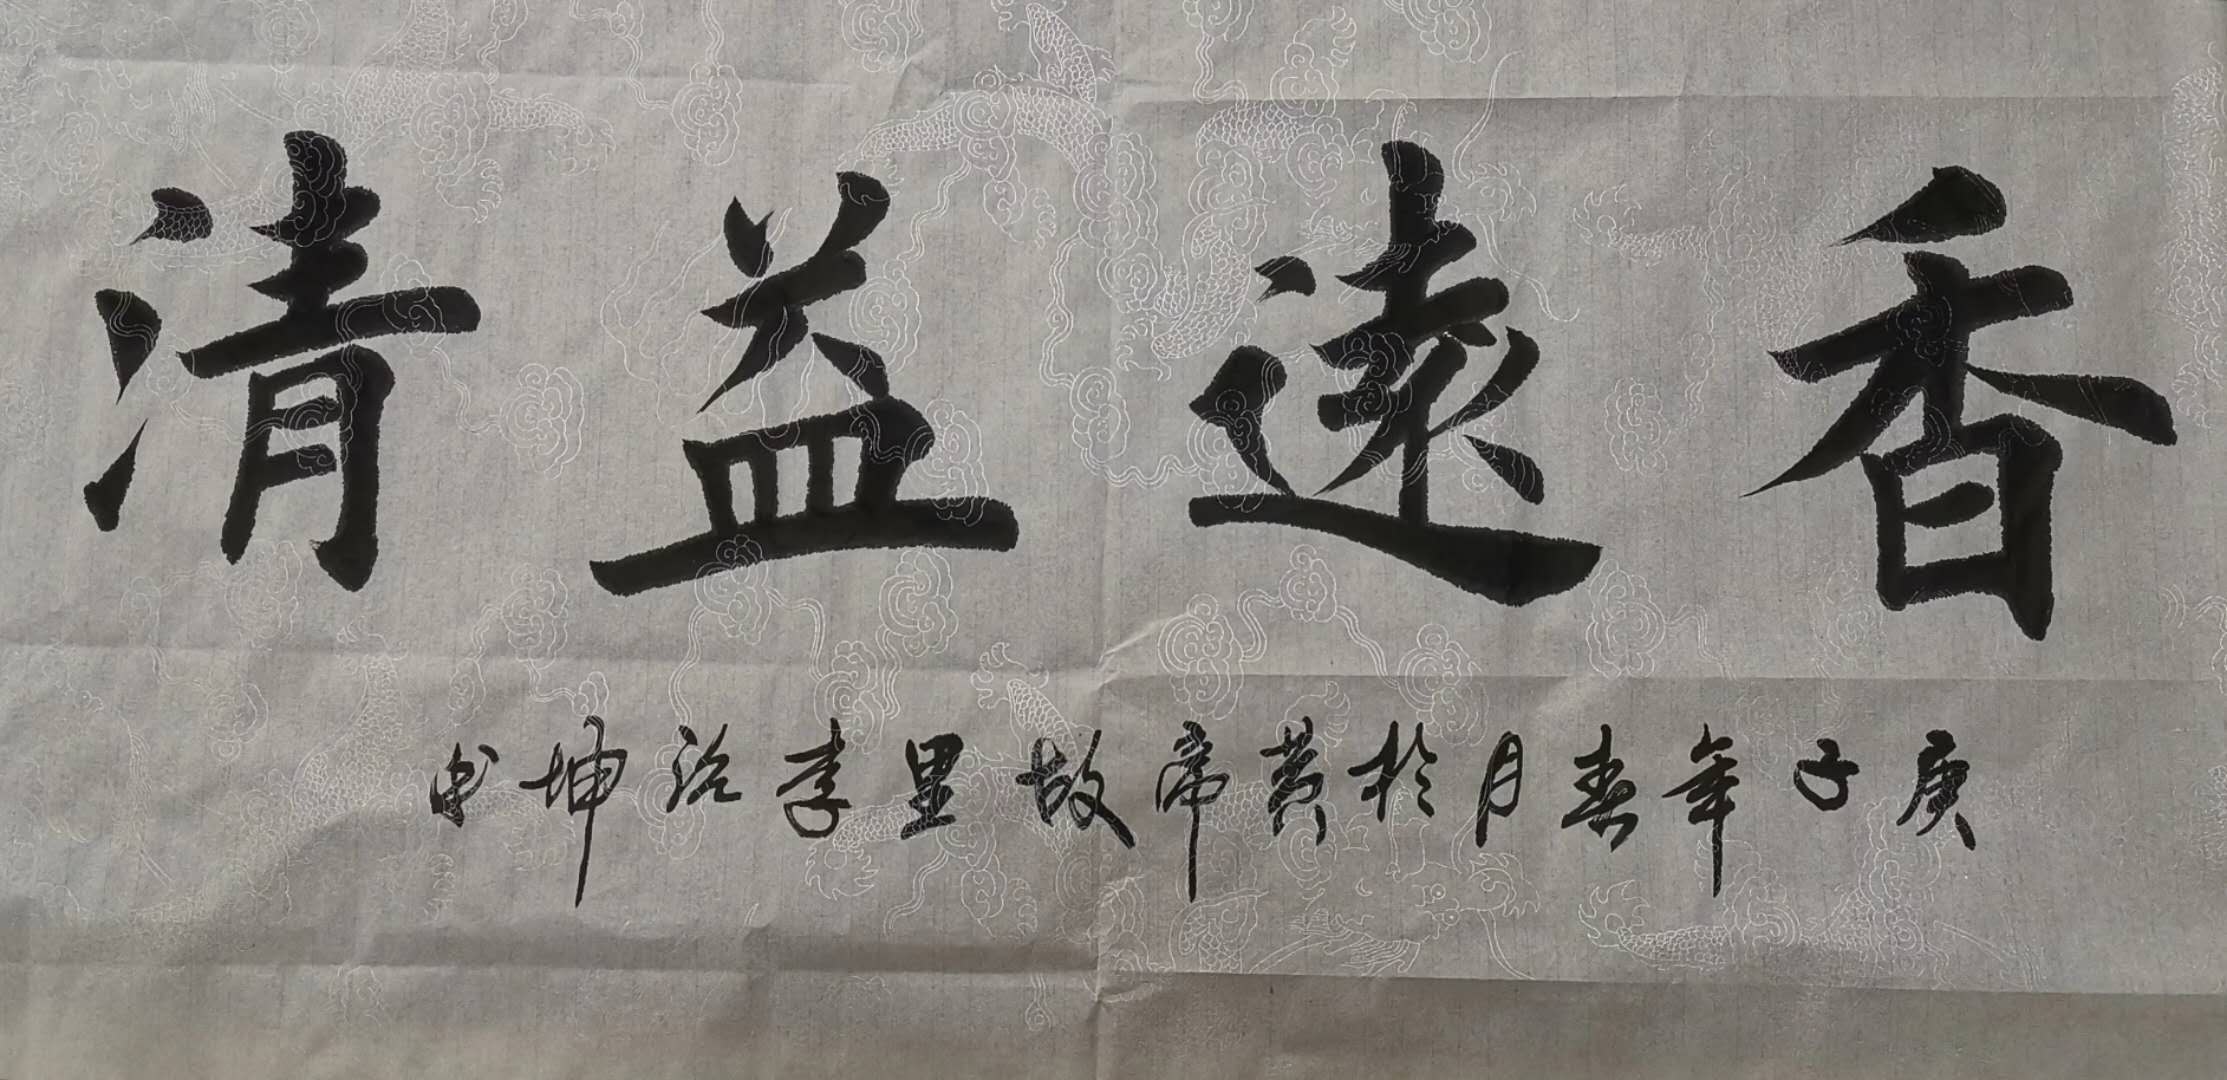 香遠益清
庚子年春月於黄帝故里李治坤书